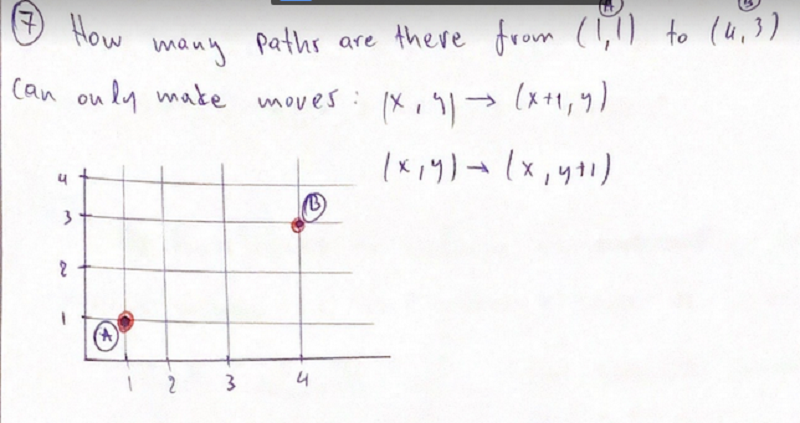 Ⓐ Ⓑ
⑦ How many paths are there from (1,1) to (4,3)
Can only make moves: (x, y) → (x+1, y)
(x, y) → (x, y+1)
4
3 Ⓑ
2
1
Ⓐ
1 2 3 4